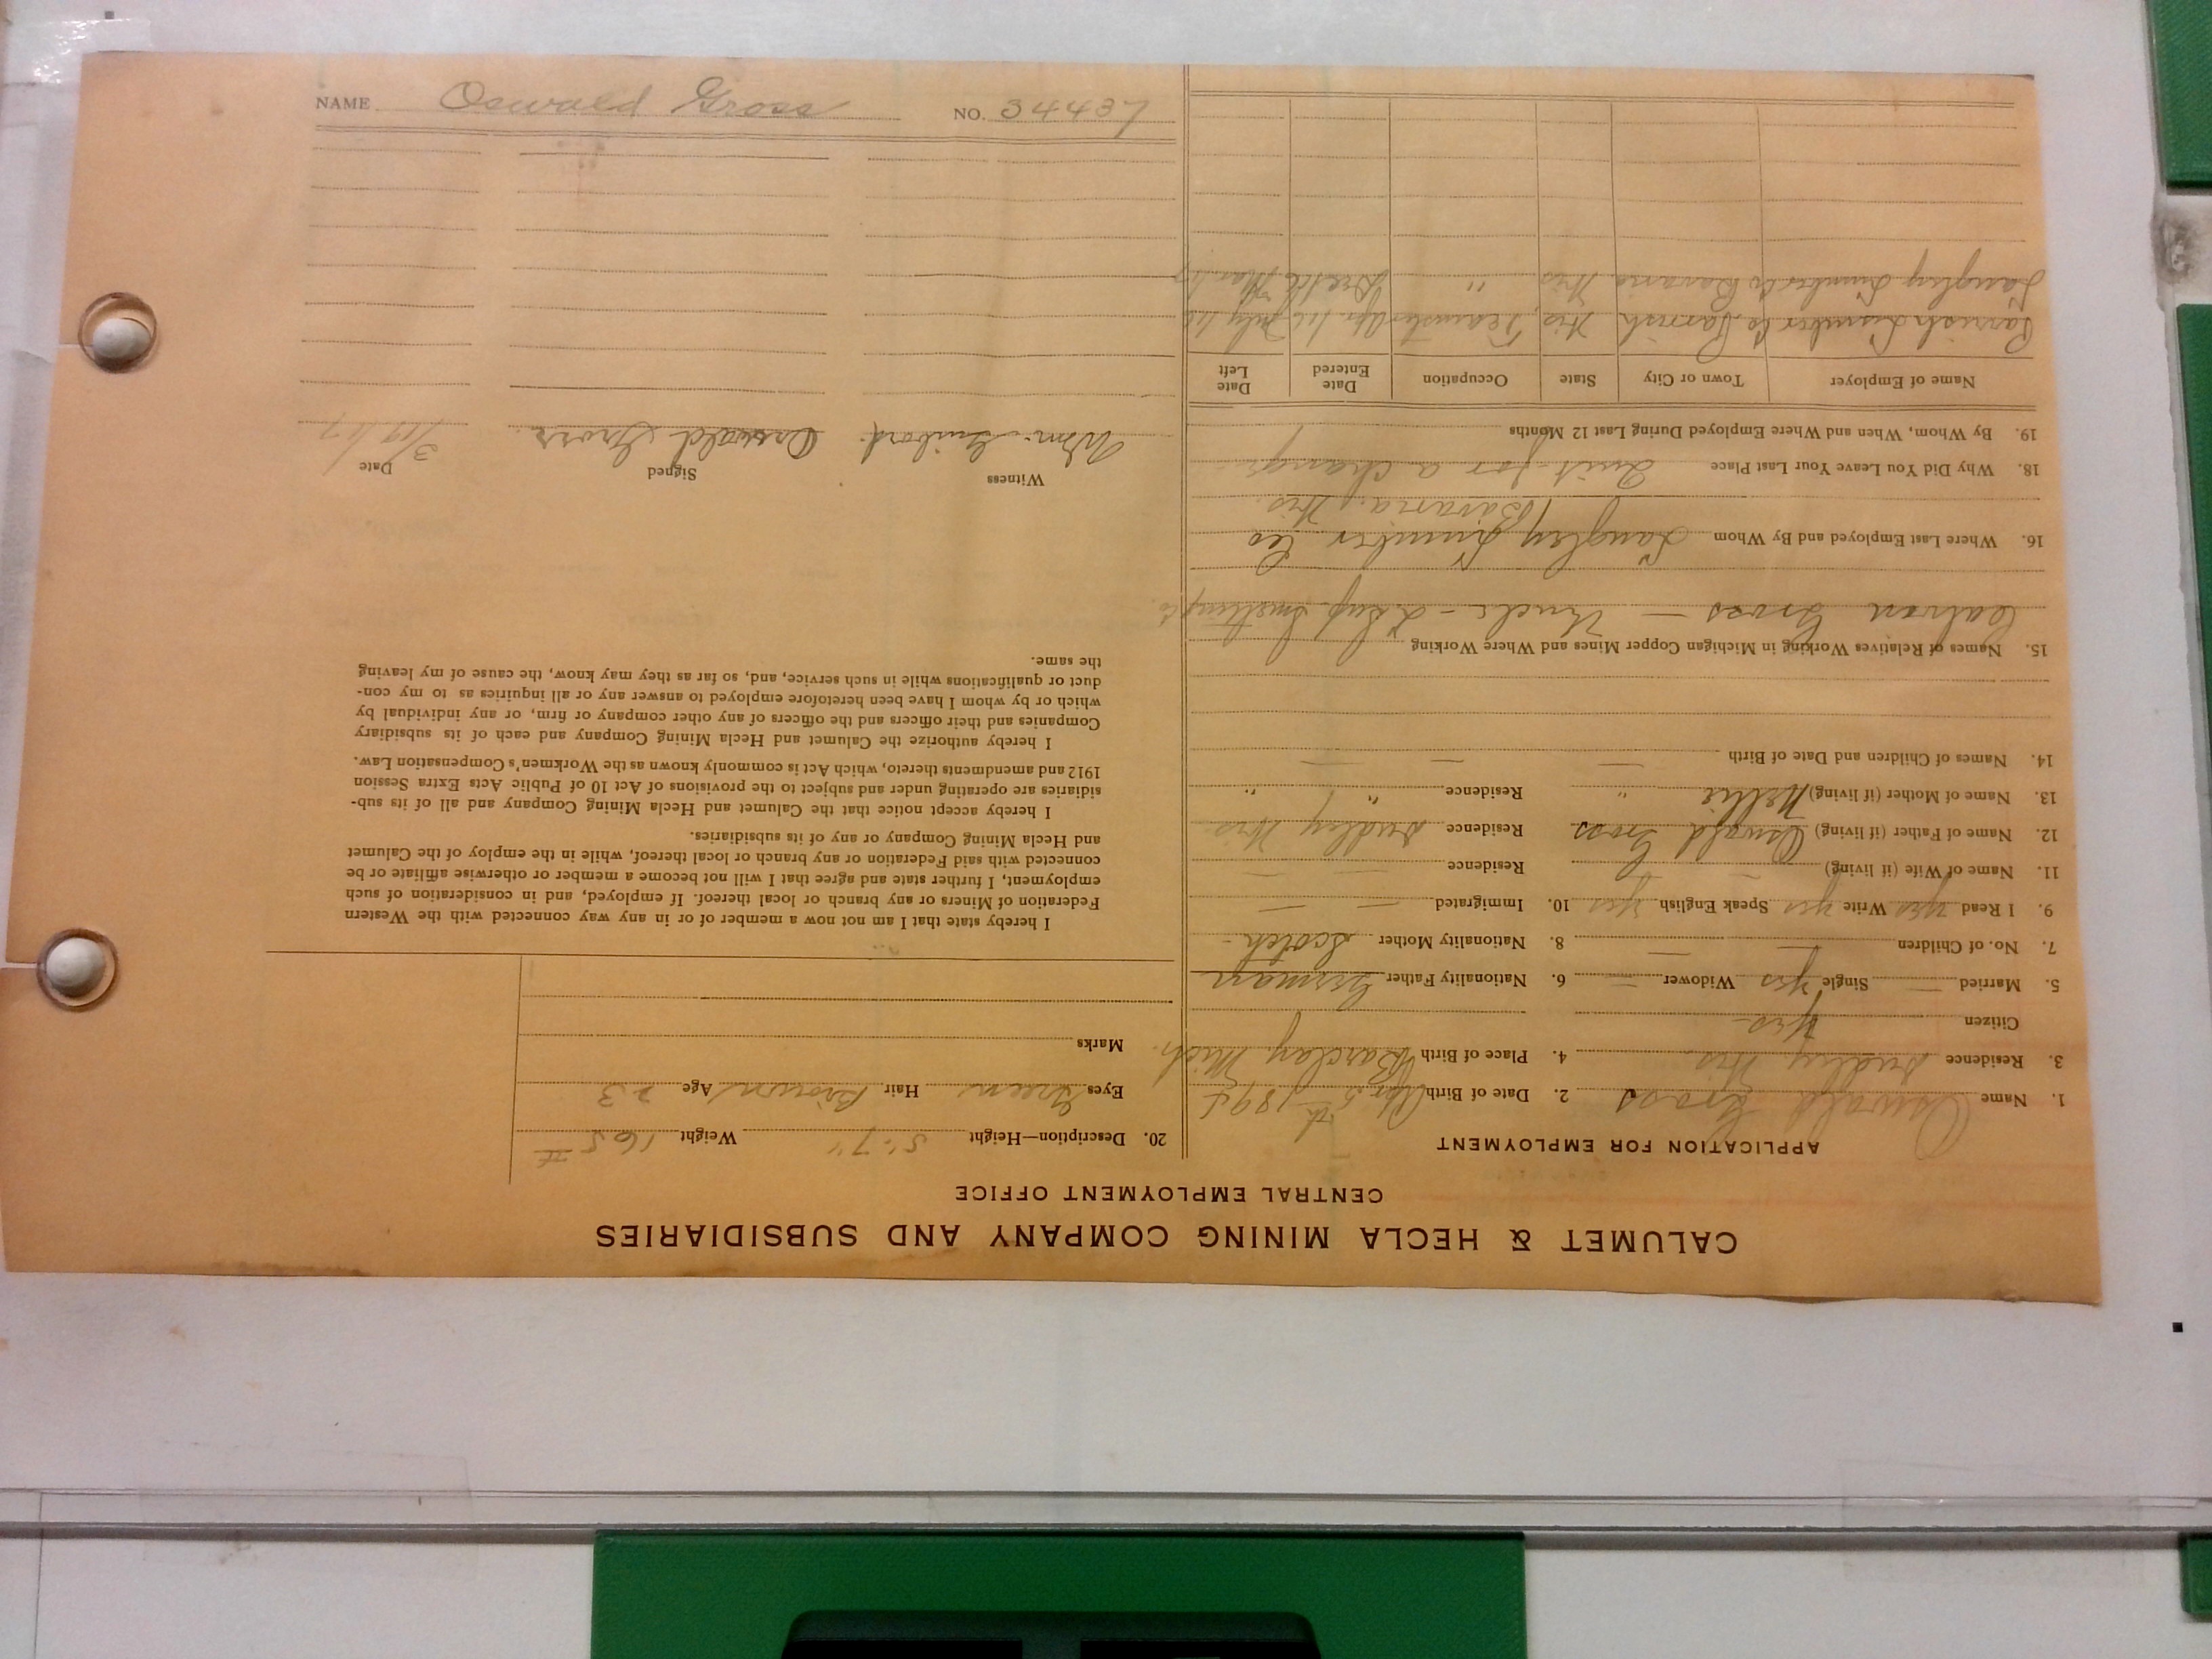 CALUMET & HECLA MINING COMPANY AND SUBSIDIARIES
CENTRAL EMPLOYMENT OFFICE
APPLICATION FOR EMPLOYMENT
1. Name Oswald Gross 2. Date of Birth Apr 5th
3. Residence Dudley, Wis. 4. Place of Birth Barclay, Mich.
Citizen Yes
5. Married — Single Yes Widower — 6. Nationality Father German
7. No. of Children — — 8. Nationality Mother Scotch
9. I Read Yes Write Yes Speak English Yes 10. Immigrated — —
11. Name of Wife (if living) — Residence — —
12. Name of Father (if living) Oswald Gross Residence Dudley Wis.
13. Name of Mother (if living) Nellie " Residence " "
14. Names of Children and Date of Birth — — —
15. Names of Relatives Working in Michigan Copper Mines and Where Working
Gross — Uncle - Smelting
16. Where Last Employed and By Whom Langley Lumber Co
Bavaria, Wis.
18. Why Did You Leave Your Last Place Quit for a change
19. By Whom, When and Where Employed During Last 12 Months
Name of Employer Town or City State Occupation Date Entered Date Left
Parrish Lumber Co Parrish Wis. Teamster Apr. 16 July 16
Langley Lumber Co Bavaria Wis " Mar. 17
20. Description—Height 5' 7" Weight 165 #
Eyes Green Hair Brown Age 23
Marks
I hereby state that I am not now a member of or in any way connected with the Western
Federation of Miners or any branch or local thereof. If employed, and in consideration of such
employment, I further state and agree that I will not become a member or otherwise affiliate or be
connected with said Federation or any branch or local thereof, while in the employ of the Calumet
and Hecla Mining Company or any of its subsidiaries.
I hereby accept notice that the Calumet and Hecla Mining Company and all of its sub-
sidiaries are operating under and subject to the provisions of Act 10 of Public Acts Extra Session
1912 and amendments thereto, which Act is commonly known as the Workmen's Compensation Law.
I hereby authorize the Calumet and Hecla Mining Company and each of its subsidiary
Companies and their officers and the officers of any other company or firm, or any individual by
which or by whom I have been heretofore employed to answer any or all inquiries as to my con-
duct or qualifications while in such service, and, so far as they may know, the cause of my leaving
the same.
Witness Signed Date
Wm. Oswald Gross 3/19/17
NAME Oswald Gross NO. 34437